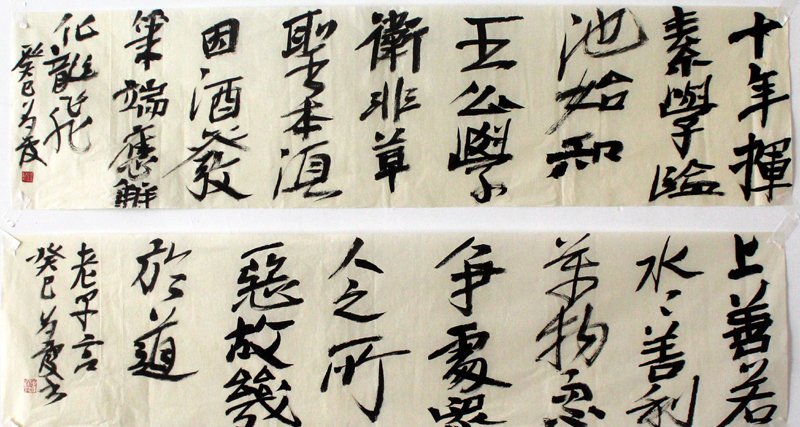 十年揮
素學臨
池始知
王公學
衛非草
聖本須
因酒發
筆端應解
化龍飛
癸巳
上善若
水〻善利
萬物
爭處眾
人之所
惡故幾
於道
老子言
癸巳